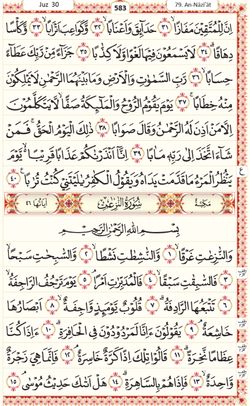 Juz 30 583 79. An-Nāzi'āt
اِنَّ لِلْمُتَّقِيْنَ مَفَازًا ٣١ حَدَآئِقَ وَاَعْنَابًا ٣٢ وَّكَوَاعِبَ اَتْرَابًا ٣٣ وَّكَأْسًا
دِهَاقًا ٣٤ لَا يَسْمَعُوْنَ فِيْهَا لَغْوًا وَّلَا كِذّٰبًا ٣٥ جَزَآءً مِّنْ رَّبِّكَ عَطَآءً
حِسَابًا ٣٦ رَّبِّ السَّمٰوٰتِ وَالْاَرْضِ وَمَا بَيْنَهُمَا الرَّحْمٰنِ لَا يَمْلِكُوْنَ
مِنْهُ خِطَابًا ٣٧ يَوْمَ يَقُوْمُ الرُّوْحُ وَالْمَلٰٓئِكَةُ صَفًّا لَّا يَتَكَلَّمُوْنَ
اِلَّا مَنْ اَذِنَ لَهُ الرَّحْمٰنُ وَقَالَ صَوَابًا ٣٨ ذٰلِكَ الْيَوْمُ الْحَقُّ فَمَنْ
شَآءَ اتَّخَذَ اِلٰى رَبِّهٖ مَاٰبًا ٣٩ اِنَّآ اَنْذَرْنٰكُمْ عَذَابًا قَرِيْبًا يَّوْمَ
يَنْظُرُ الْمَرْءُ مَا قَدَّمَتْ يَدٰهُ وَيَقُوْلُ الْكٰفِرُ يٰلَيْتَنِيْ كُنْتُ تُرٰبًا ٤٠
مَكِّيَّةٌ سُوْرَةُ النّٰزِعٰتِ اٰيَاتُهَا ٤٦
بِسْمِ اللّٰهِ الرَّحْمٰنِ الرَّحِيْمِ
وَالنّٰزِعٰتِ غَرْقًا ١ وَّالنّٰشِطٰتِ نَشْطًا ٢ وَّالسّٰبِحٰتِ سَبْحًا
٣ فَالسّٰبِقٰتِ سَبْقًا ٤ فَالْمُدَبِّرٰتِ اَمْرًا ٥ يَوْمَ تَرْجُفُ الرَّاجِفَةُ
٦ تَتْبَعُهَا الرَّادِفَةُ ٧ قُلُوْبٌ يَّوْمَئِذٍ وَّاجِفَةٌ ٨ اَبْصَارُهَا
خَاشِعَةٌ ٩ يَقُوْلُوْنَ ءَاِنَّا لَمَرْدُوْدُوْنَ فِى الْحَافِرَةِ ١٠ ءَاِذَا كُنَّا
عِظَامًا نَّخِرَةً ١١ قَالُوْا تِلْكَ اِذًا كَرَّةٌ خَاسِرَةٌ ١٢ فَاِنَّمَا هِيَ زَجْرَةٌ
وَّاحِدَةٌ ١٣ فَاِذَا هُمْ بِالسَّاهِرَةِ ١٤ هَلْ اَتٰىكَ حَدِيْثُ مُوْسٰى ١٥